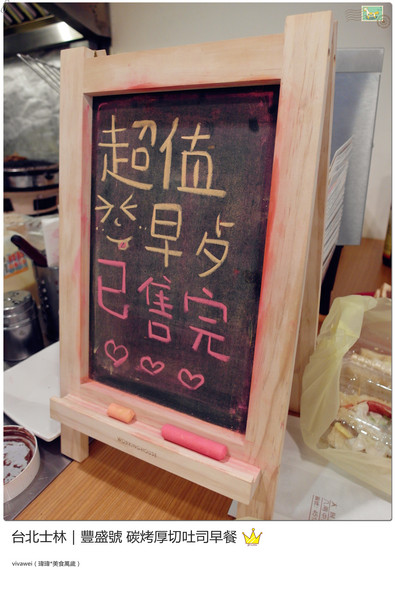 超值
早歺
已售完
台北士林｜豐盛號 碳烤厚切吐司早餐
vivawei（瑋瑋*美食萬歲）